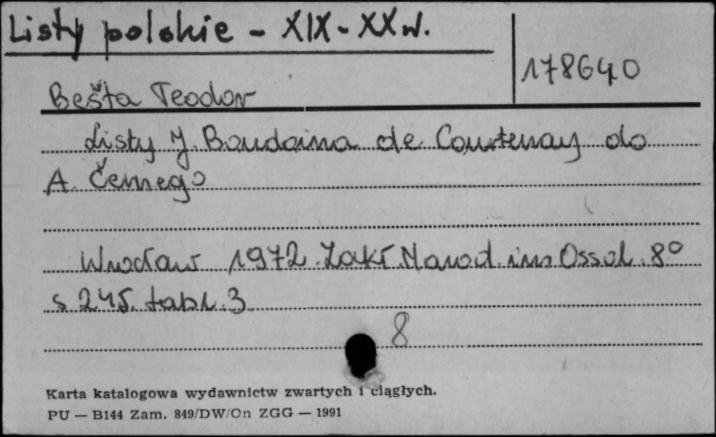 Listy polskie - XIX - XX w.
178640
Bešta Teodor
Listy J. Baudoina de Courtenay do
A. Černego
Wrocław 1972. Zakł. Narod. im Ossol. 8°
s 245. tabl. 3
8
Karta katalogowa wydawnictw zwartych i ciągłych.
PU — B144 Zam. 849/DW/On ZGG — 1991